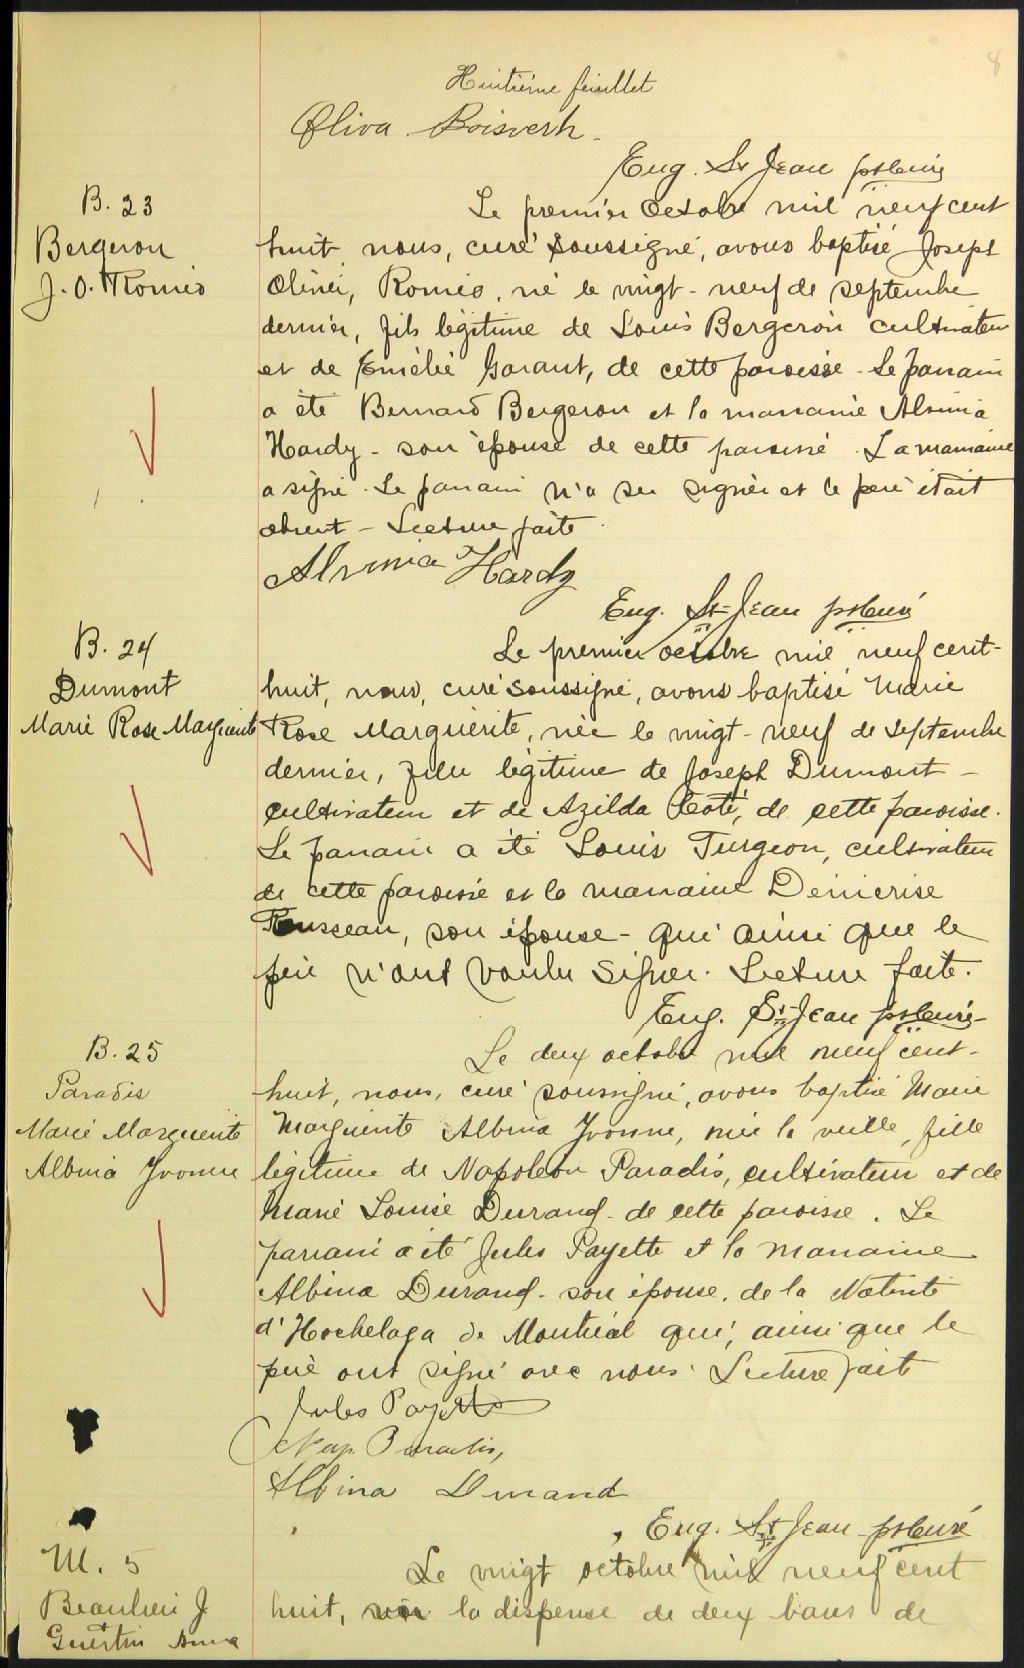 8
Huitième feuillet
Oliva Boisvert
Eug. St Jean ptre curé
B. 23
Bergeron
J. O. Roméo
Le premier Octobre mil neuf cent
huit, nous, curé soussigné, avons baptisé Joseph
Olivier, Roméo, né le vingt-neuf de septembre
dernier, fils légitime de Louis Bergeron cultivateur
et de Emélie Garant, de cette paroisse. Le parrain
a été Bernard Bergeron et la marraine Alvina
Hardy - son épouse de cette paroisse. La marraine
a signé. Le parrain n'a su signer et le père était
absent - Lecture faite.
Alvina Hardy
Eug. St-Jean ptre curé
B. 24
Dumont
Marie Rose Marguerite
Le premier octobre mil neuf cent-
huit, nous, curé soussigné, avons baptisé Marie
Rose Marguerite, née le vingt-neuf de Septembre
dernier, fille légitime de Joseph Dumont -
cultivateur et de Azilda Coté, de cette paroisse.
Le parrain a été Louis Turgeon, cultivateur
de cette paroisse et la marraine Démerise
Rousseau, son épouse - qui ainsi que le
père n'ont voulu signer. Lecture faite.
Eug. St-Jean ptre curé
B. 25
Paradis
Marie Marguerite
Albina Yvonne
Le deux octobre mil neuf cent-
huit, nous, curé soussigné, avons baptisé Marie
Marguerite Albina Yvonne, née la veille, fille
légitime de Napoléon Paradis, cultivateur et de
Marie Louise Durand - de cette paroisse. Le
parrain a été Jules Payette et la marraine
Albina Durand - son épouse, de la Nativité
d'Hochelaga de Montréal qui, ainsi que le
père ont signé avec nous. Lecture faite
Jules Payette
Nap. Paradis,
Albina Durand
Eug. St Jean ptre curé
M. 5
Beaulieu J
+
Guertin Anna
Le vingt octobre mil neuf cent
huit, vu la dispense de deux bans de